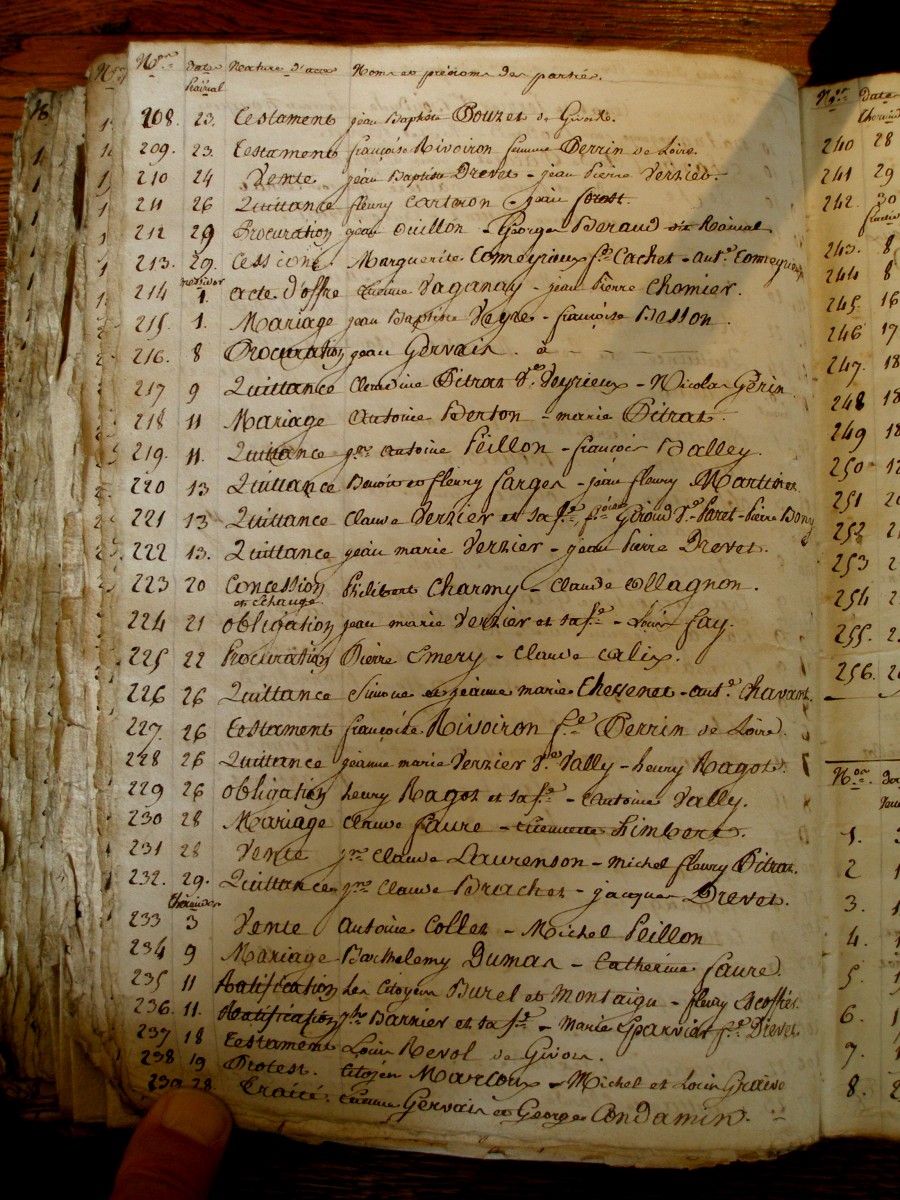 Nos Dates Nature d'actes Noms et prénoms des parties.
Prairial
208. 23. Testament jean Baptiste Pouzet de Givors.
209. 23. Testament françoise Rivoiron femme Perrin de Loire.
210 24 Vente jean Baptiste Drevet - jean Pierre Verzier.
211 26 Quittance fleury - jean
212 29 Procuration jean Ouillon - Georges Beraud dit
213. 29. Cession Marguerite Comeyrioux fe. Cachet - ant.e Comeyrioux
messidor
214 1. acte d'offre Etienne Vaganay - jean Pierre Chomier.
215. 1. Mariage jean Baptiste Veyre - françoise Besson.
216. 8 Procuration jean Gervais. à
217 9 Quittance Claudine Pitrat Ve. Veyrieux - Nicolas Gerin
218 11 Mariage Antoine Berton - marie Pitrat.
219. 11. Quittance pre antoine Peillon - françois Balley
220 13 Quittance Benoit et fleury farges - jean fleury Martinet
221 13 Quittance Claude Verzier et sa fe. Giroud Ve. Paret - Pierre Bony
222 13. Quittance jean marie Verzier - jean Pierre Drevet.
223 20 Concession Philibert Charmy - Claude Collagnon.
et échange
224 21 obligation jean marie Verzier et sa fe. - Louis fay.
225 22 Procuration Pierre Emery - Claude Calix.
226 26 Quittance Simone et jeanne marie Chessenet - ant.e Chavant
227. 26 Testament françoise Rivoiron fe. Perrin de Loire.
228 26 Quittance jeanne marie Verzier Ve. Vally - henry Ragot.
229 26 obligation henry Ragot et sa fe. - Antoine Vally.
230 28 Mariage Claude faure - Etiennette Limbert.
231 28 Vente pre Claude Laurenson - Michel fleury Pitrat.
232. 29. Quittance pre Claude Brachet - jacques Drevet.
thermidor
233 3 Vente Antoine Collet - Michel Peillon
234 9 Mariage Barthelemy Dumas - Catherine faure.
235 11 Ratification Les Citoyens Burel et Montaigu - fleury
236. 11. Ratification Barrier et sa fe. - Marie Eparvier fe. Drevet
237 18 Testament Louis Revol de Givors.
238 19 Protest. Citoyen Marcoux - Michel et Louis Graise
239 28 Traité. Etienne Gervais et Georges Condamin.
Nos Date
thermidor
240 28
241 29
242. 30
243. 8
244 8
245. 16
246 17
247. 18
248 18
249 18
250
251
252
253
254
255.
256.
Nos
1.
2
3.
4.
5.
6.
7.
8.